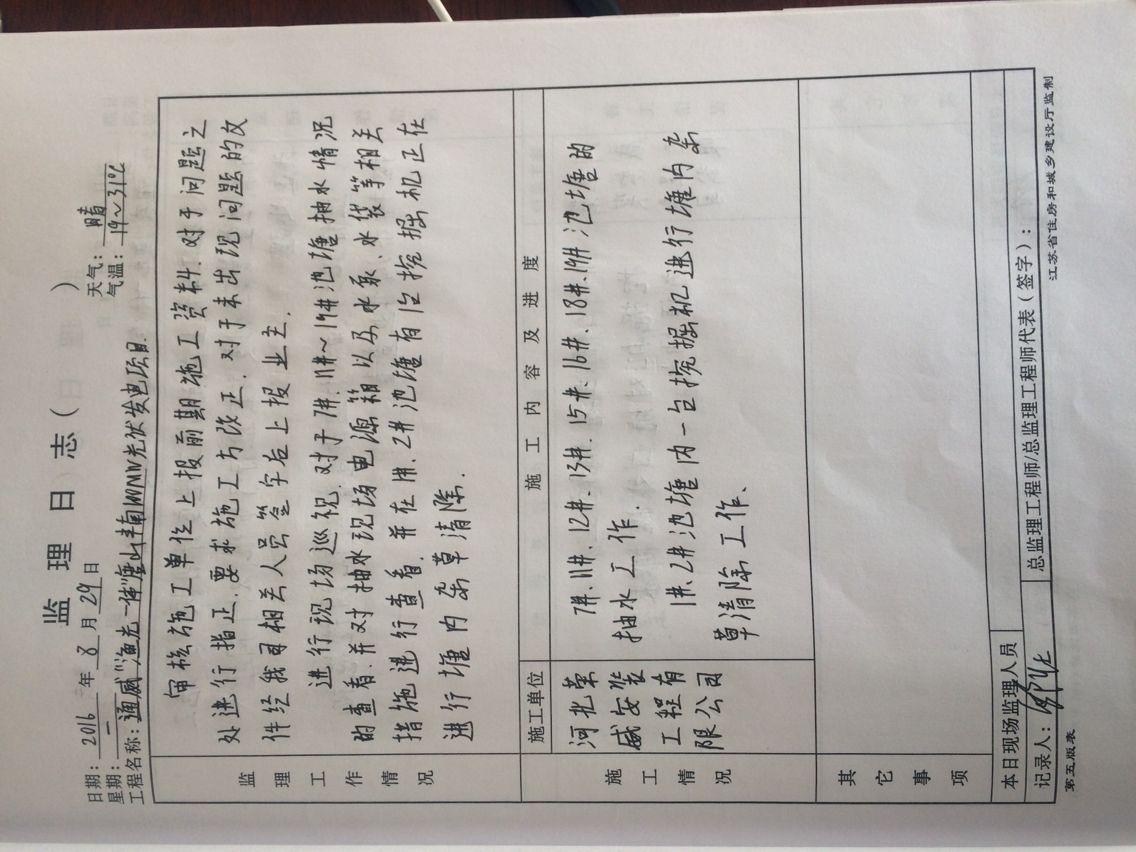 监 理 日 志（日 志）
日期：2016年8月29日 天气：晴
星期：一 气温：19～31℃
工程名称：通威“渔光一体”唐山丰南100MW光伏发电项目.
监理工作情况
审核施工单位上报前期施工资料.对于问题之
处进行指正.要求施工方改正.对于未出现问题的文
件经我司相关人员签字后上报业主.
进行现场巡视.对于7#.11#～19#池塘抽水情况
的查看.并对抽水现场电源箱以及水泵、水袋等相关
措施进行查看.并在1#.2#池塘有1台挖掘机正在
进行塘内杂草清除.
施工情况
施工单位 施 工 内 容 及 进 度
河北荣
盛安装
工程有
限公司
7#.11#.12#.13#.15#.16#.18#.19#池塘的
抽水工作.
1#.2#池塘内一台挖掘机进行塘内杂
草清除工作、
其它事项
本日现场监理人员
记录人： 总监理工程师/总监理工程师代表（签字）：
第五版表 江苏省住房和城乡建设厅监制